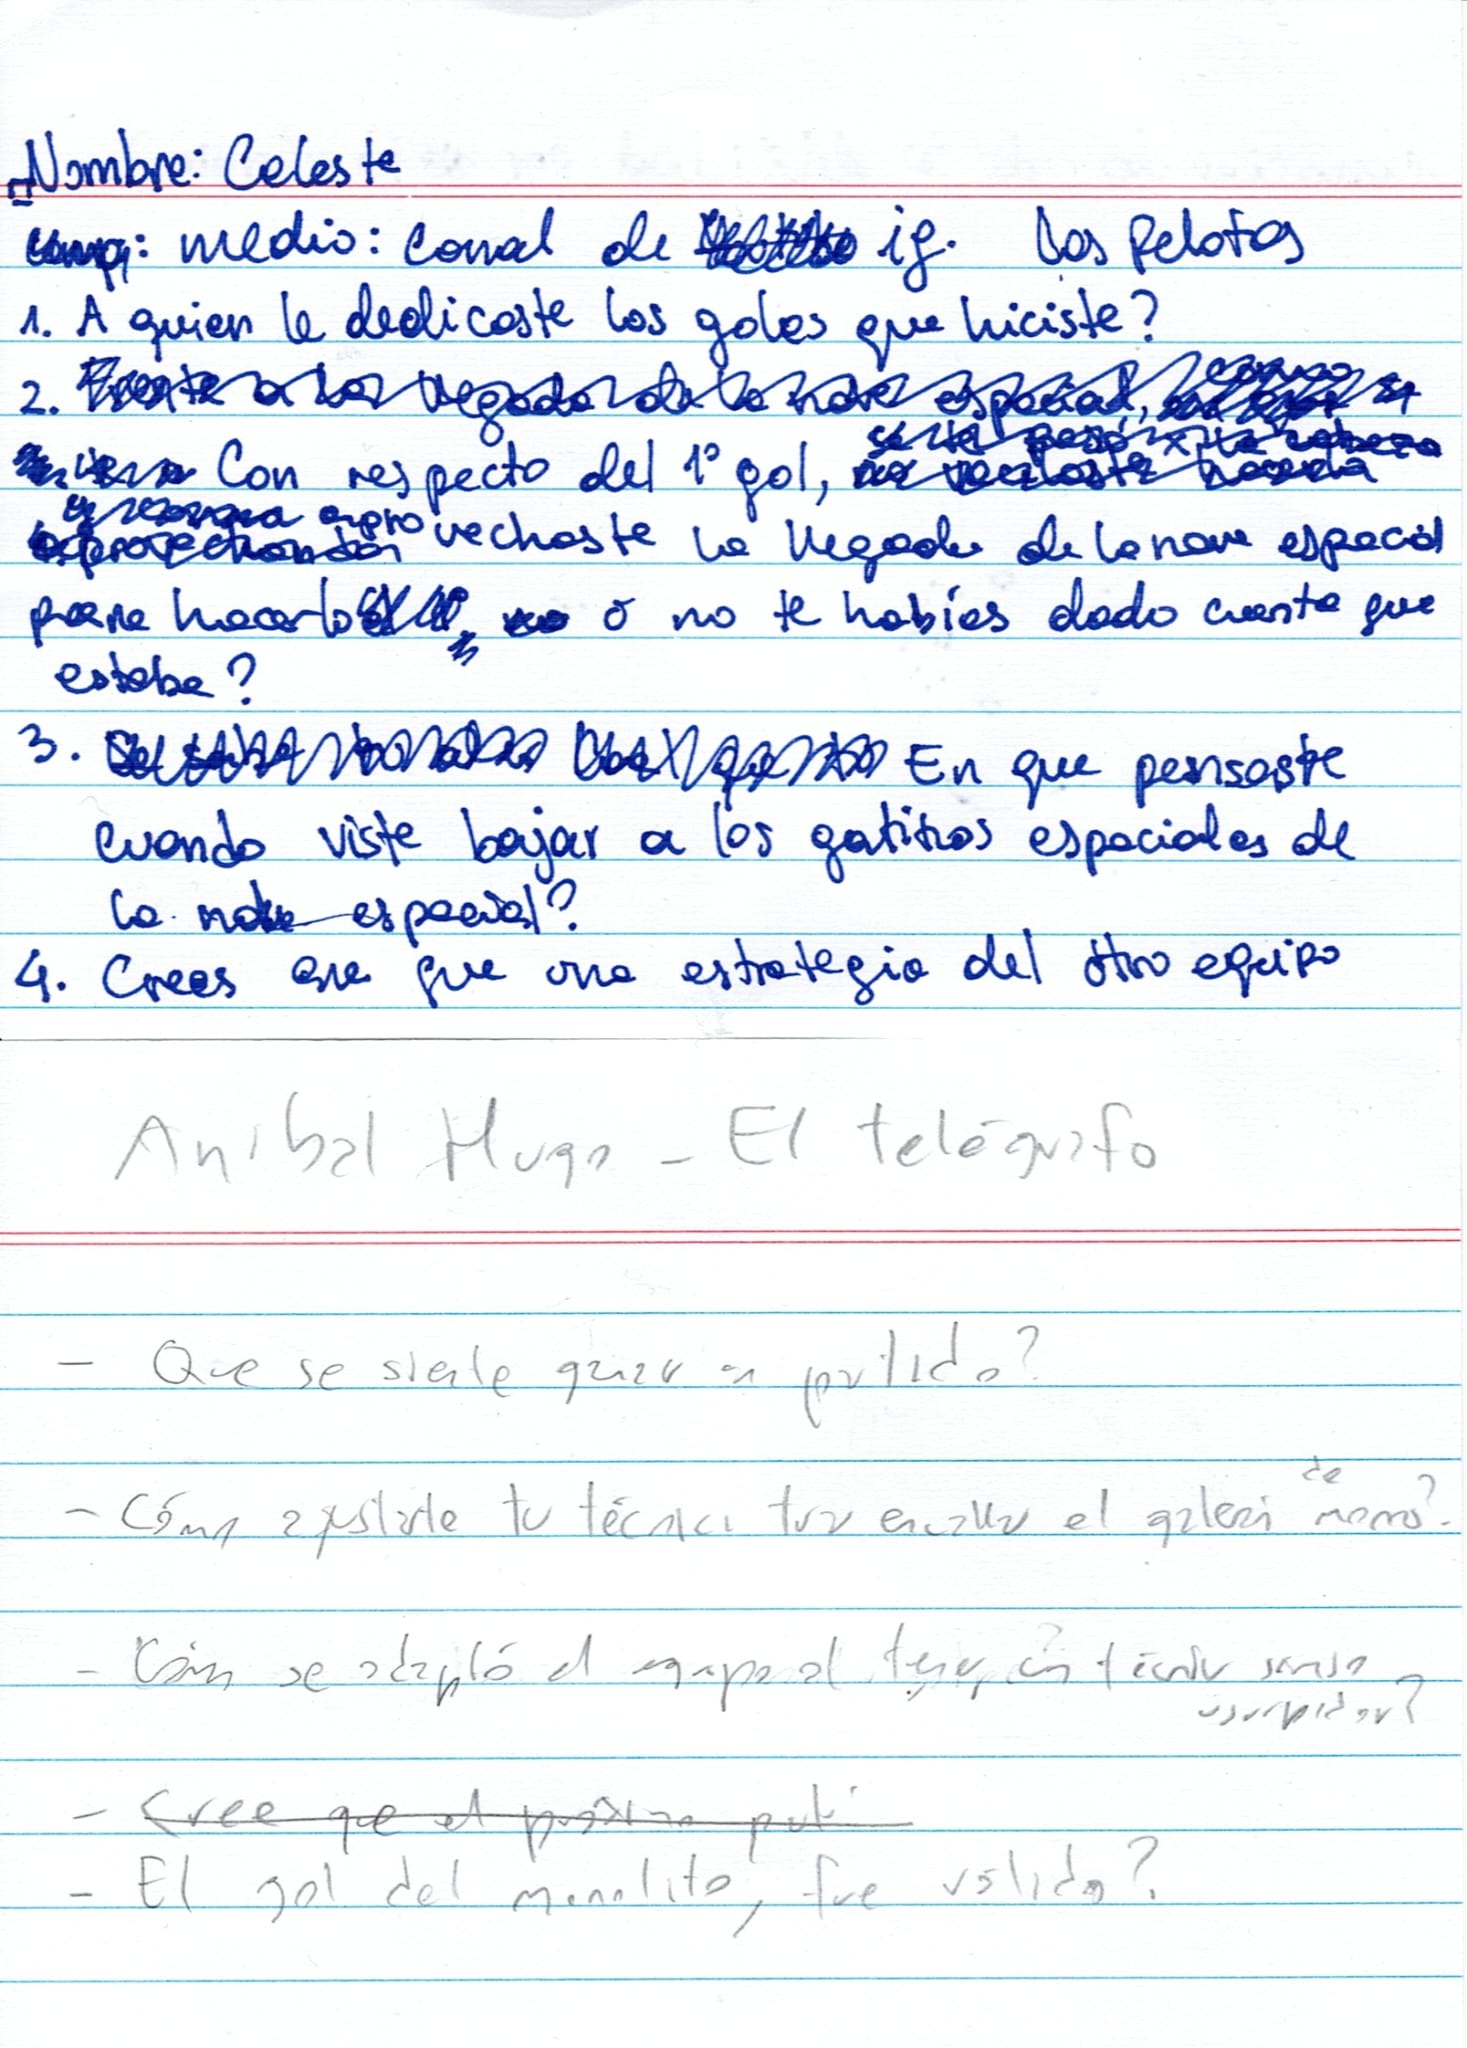 Nombre: Celeste
medio: canal de ig. Las Pelotas
1. A quien le dedicaste los goles que hiciste?
2. Frente a la llegada de la nave espacial,
Con respecto del 1° gol,
aprovechaste la llegada de la nave espacial
para hacerlo o no te habías dado cuenta que
estaba?
3. En que pensaste
cuando viste bajar a los gatitos espaciales de
la nave espacial?
4. Crees que una estrategia del otro equipo
Aníbal Hugo - El telégrafo
- Que se siente ganar un partido?
- Cómo ajustaste tu técnica tras el de mono?
- Cómo se adaptó el equipo al tener un técnico
usurpador?
- Cree que el próximo parti
- El gol del monolito, fue válido?